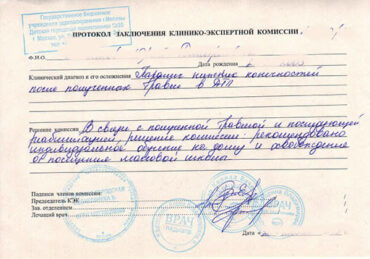 Государственное бюджетное
учреждение здравоохранения г. Москвы
Детская городская поликлиника
г. Москва, ул.
ПРОТОКОЛ ЗАКЛЮЧЕНИЯ КЛИНИКО-ЭКСПЕРТНОЙ КОМИССИИ
Ф.И.О.
Дата рождения
Клинический диагноз и его осложнения Паралич нижних конечностей
после полученных травм в ДТП
Решение комиссии В связи с полученной травмой и последующей
реабилитацией, решение комиссии: рекомендовано
индивидуальное обучение на дому и освобождение
от посещения массовой школы
Подписи членов комиссии:
Председатель КЭК
Зав. отделением
Лечащий врач
ВРАЧ
ВРАЧ
Дата